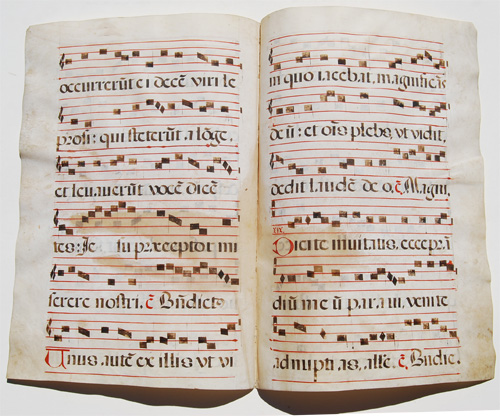 occurrerūt ei decē viri le
prosi: qui steterūt a lōge,
et levaverūt vocē dicē
tes: Je su præceptor mi
serere nostri. c̄ Bn̄dicto
Unus autē ex illis ut vi
in quo iacebat, magnificās
deū: et oīs plebs, ut vidit,
dedit laudē deo, c̄ Magni,
Dicite invitatis, ecce prā
diū meū paravi, venite
ad nuptias, allē. c̄ Bn̄dic.